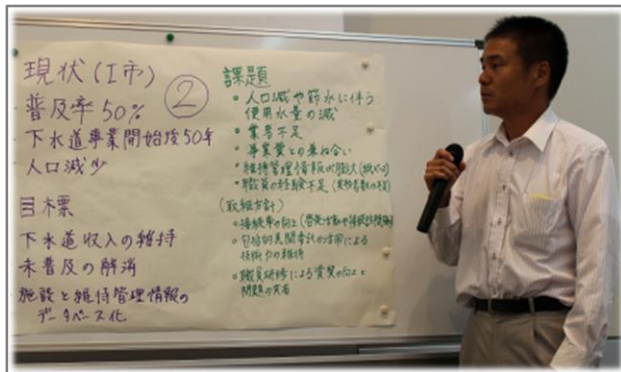 現状(I市)
②
普及率50%
下水道事業開始後50年
人口減少
目標
下水道収入の維持
未普及の解消
施設と維持管理情報の
データベース化
課題
・人口減や節水に伴う
使用水量の減
・業者不足
・事業費との兼ね合い
・維持管理情報が膨大(紙ベース)
・職員の経験不足
(取組方針)
・接続率の向上
・包括的民間委託の活用による
技術力の維持
・職員研修による資質の向上と
問題の共有